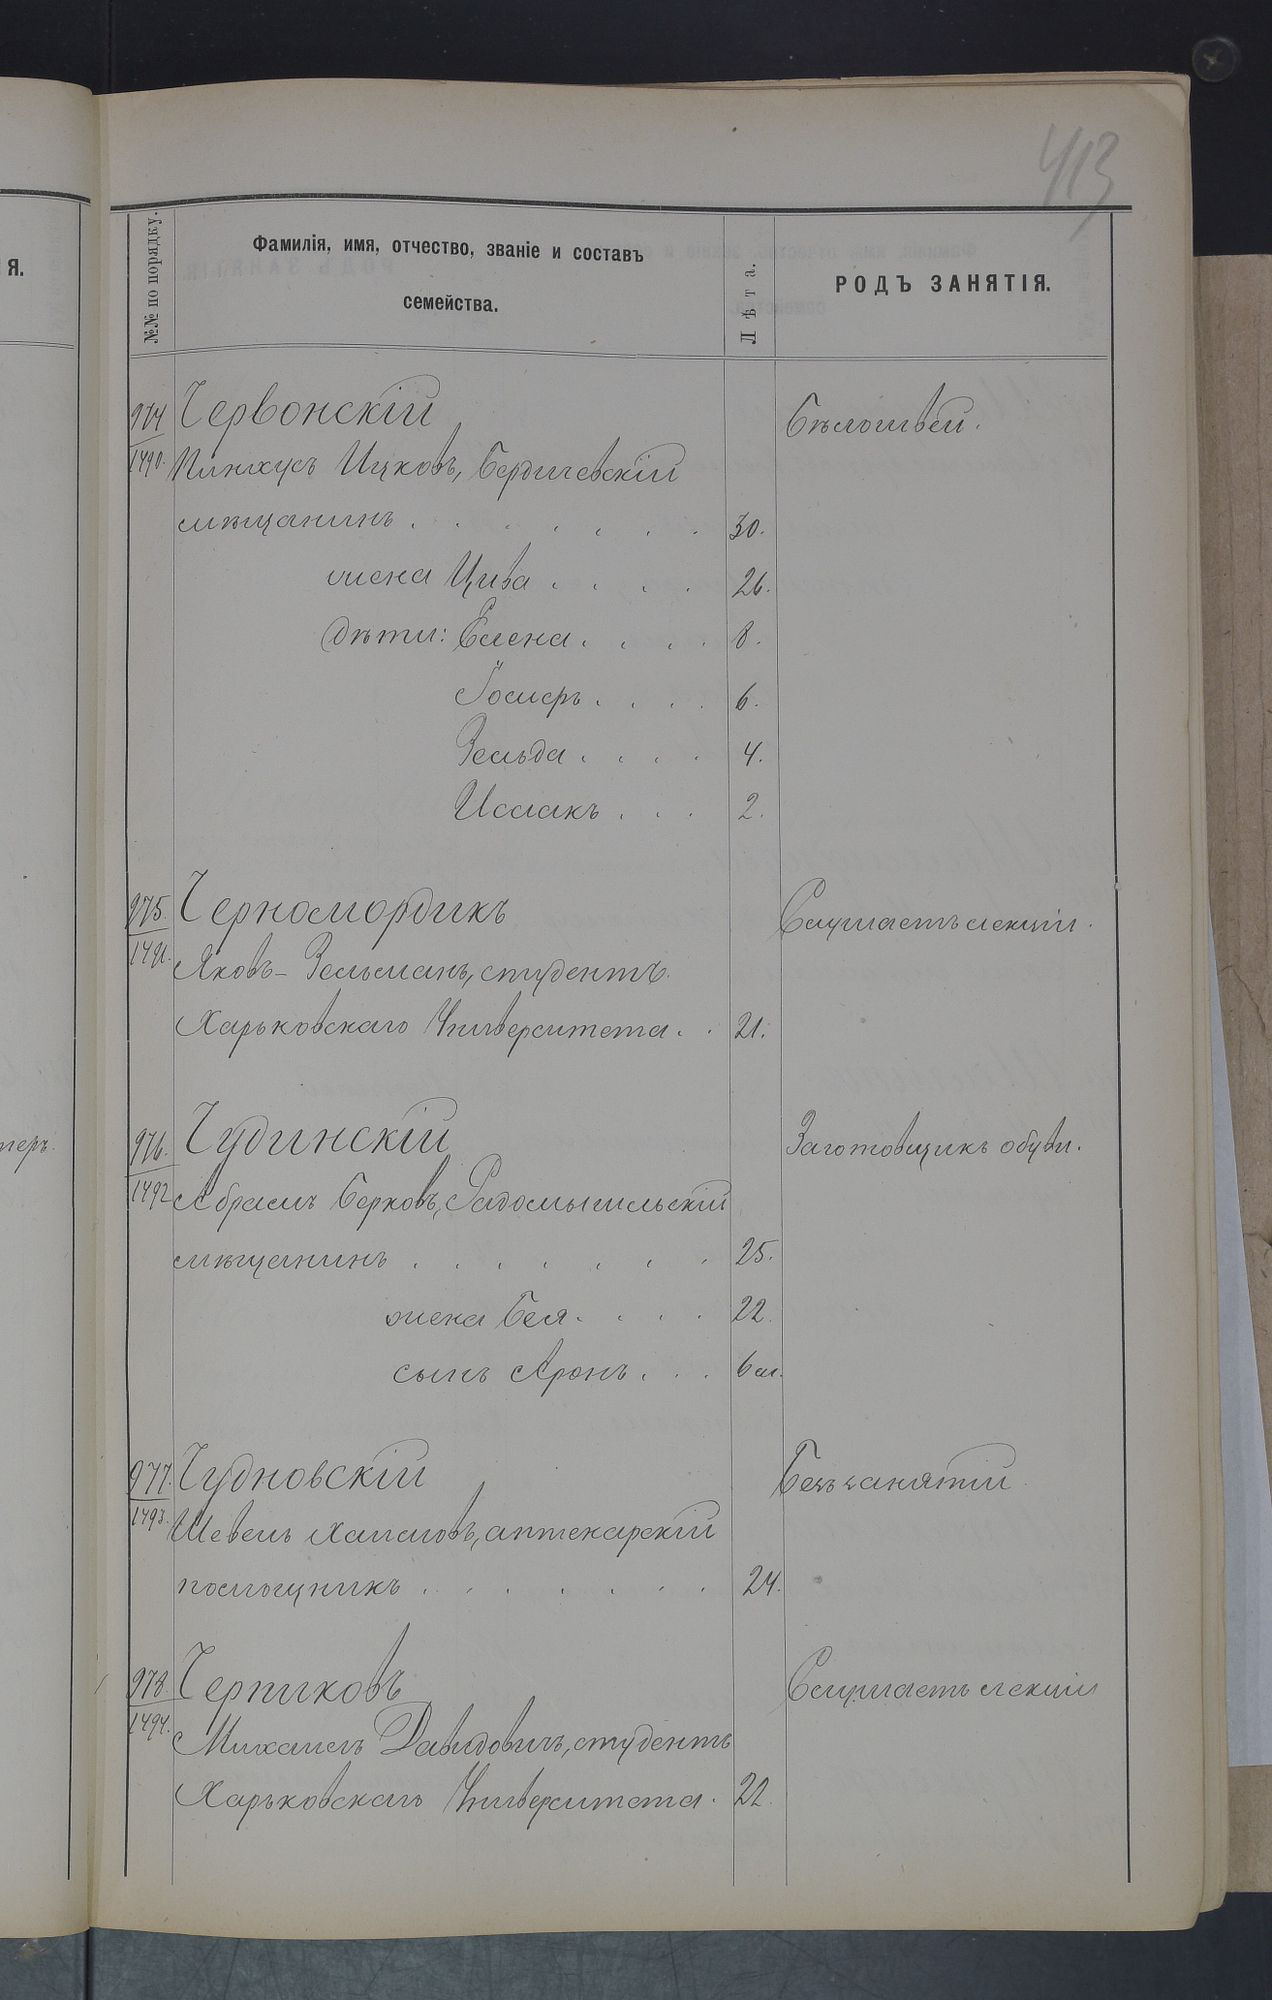 413
Я.
№№ по порядку.
Фамилія, имя, отчество, званіе и составъ
семейства.
Лѣта.
РОДЪ ЗАНЯТІЯ.
974
1490.
Червонскій
Бѣлошвей.
Пинхусъ Ицковъ, Бердичевскій
мѣщанинъ . . . . . . . 30.
жена Цива . . . . 26.
дѣти: Елена . . . . 8.
Іосифъ . . . . 6.
Зельда . . . . 4.
Исаакъ . . . 2.
975.
1491.
Черномордикъ
Слушаетъ лекціи.
Яковъ-Зельманъ, студентъ
Харьковскаго Университета . . 21.
976.
1492
Чудинскій
Заготовщикъ обуви.
Абрамъ Берковъ, Радомысльскій
мѣщанинъ . . . . . . . 25.
жена Бея . . . . 22.
сынъ Аронъ . . . 6 м.
977.
1493.
Чудновскій
Безъ занятій
Шевель Хаимовъ, аптекарскій
помощникъ . . . . . . . 24.
978.
1494.
Черниковъ
Слушаетъ лекціи
Михаилъ Давидовичъ, студентъ
Харьковскаго Университета . 22.